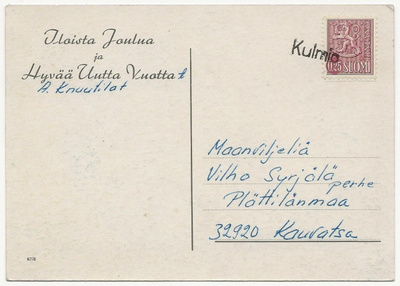 Iloista Joulua
ja
Hyvää Uutta Vuotta
A. Knuutilat
Kulmio
0,25 SUOMI
Maanviljeliä
Vilho Syrjälä
perhe
Plöttilänmaa
32920 Kauvatsa